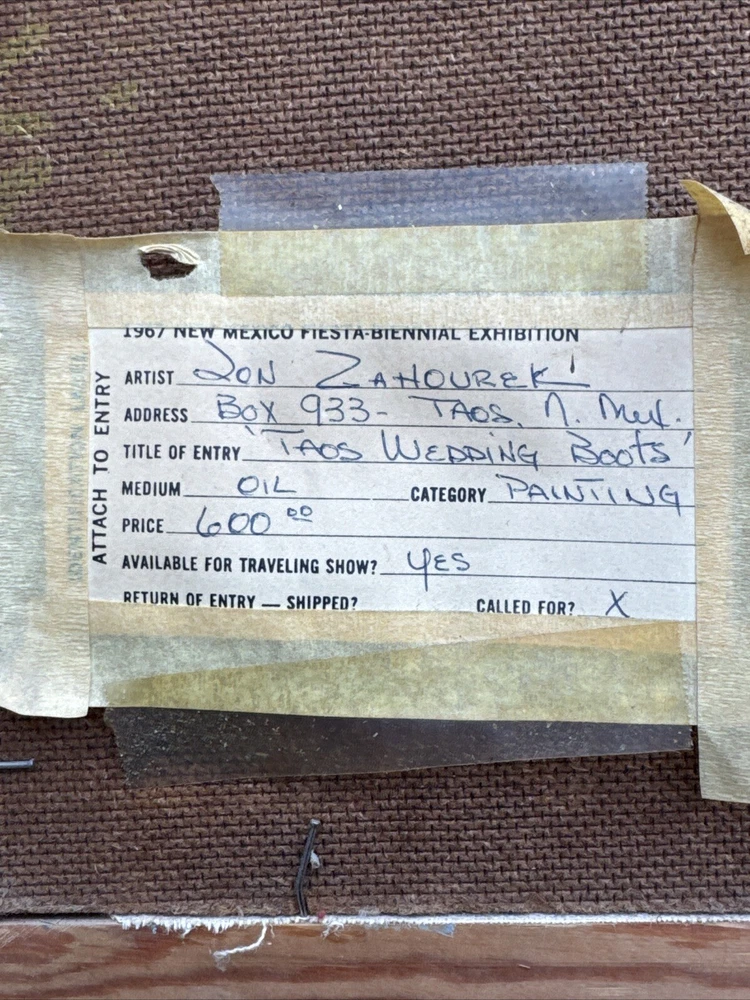 ATTACH TO ENTRY
1967 NEW MEXICO FIESTA-BIENNIAL EXHIBITION
ARTIST JON ZAHOUREK
ADDRESS BOX 933- TAOS, N. Mex.
TITLE OF ENTRY 'TAOS WEDDING BOOTS'
MEDIUM OIL CATEGORY PAINTING
PRICE 600 00
AVAILABLE FOR TRAVELING SHOW? YES
RETURN OF ENTRY — SHIPPED? CALLED FOR? X